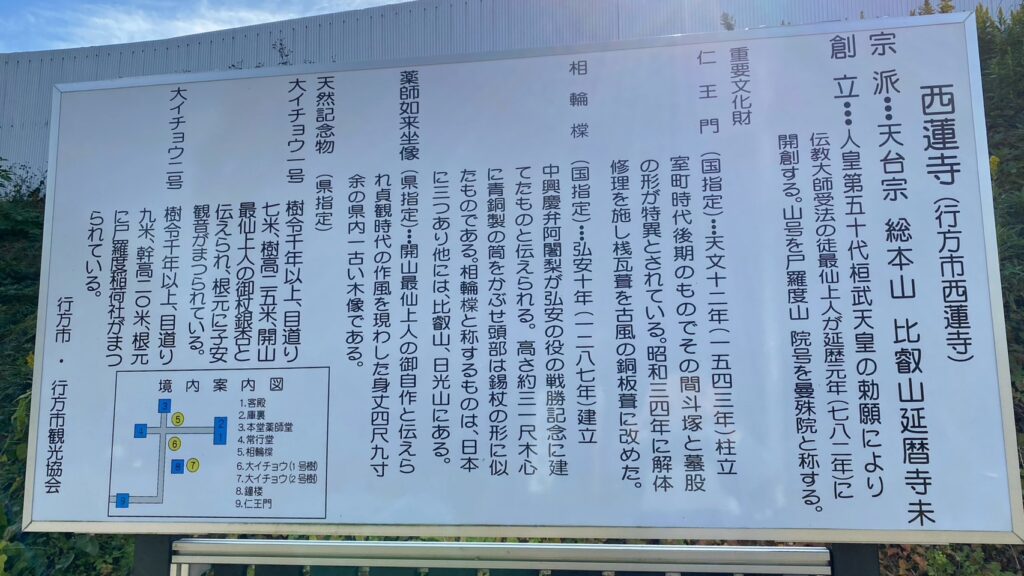 西蓮寺(行方市西蓮寺)
宗派…天台宗 総本山 比叡山延暦寺末
創立…人皇第五十代桓武天皇の勅願により
伝教大師受法の徒最仙上人が延暦元年(七八二年)に
開創する。山号を尸羅度山 院号を曼殊院と称する。
重要文化財
仁王門 (国指定)…天文十二年(一五四三年)柱立
室町時代後期のものでその間斗塚と蟇股
の形が特異とされている。昭和三四年に解体
修理を施し桟瓦葺を古風の銅板葺に改めた。
相輪橖 (国指定)…弘安十年(一二八七年)建立
中興慶弁阿闍梨が弘安の役の戦勝記念に建
てたものと伝えられる。高さ約三一尺木心
に青銅製の筒をかぶせ頭部は錫杖の形に似
たものである。相輪橖と称するものは、日本
に三つあり他には、比叡山、日光山にある。
薬師如来坐像 (県指定)…開山最仙上人の御自作と伝えら
れ貞観時代の作風を現わした身丈四尺九寸
余の県内一古い木像である。
天然記念物 (県指定)
大イチョウ一号 樹令千年以上、目通り
七米、樹高二五米、開山
最仙上人の御杖銀杏と
伝えられ、根元に子安
観音がまつられている。
大イチョウ二号 樹令千年以上、目通り
九米、幹高二〇米、根元
に尸羅長稲荷社がまつ
られている。
行方市・行方市観光協会
境内案内図
1.客殿
2.庫裏
3.本堂薬師堂
4.常行堂
5.相輪橖
6.大イチョウ(1号樹)
7.大イチョウ(2号樹)
8.鐘楼
9.仁王門
3
5
4
2・1
6
8
7
9